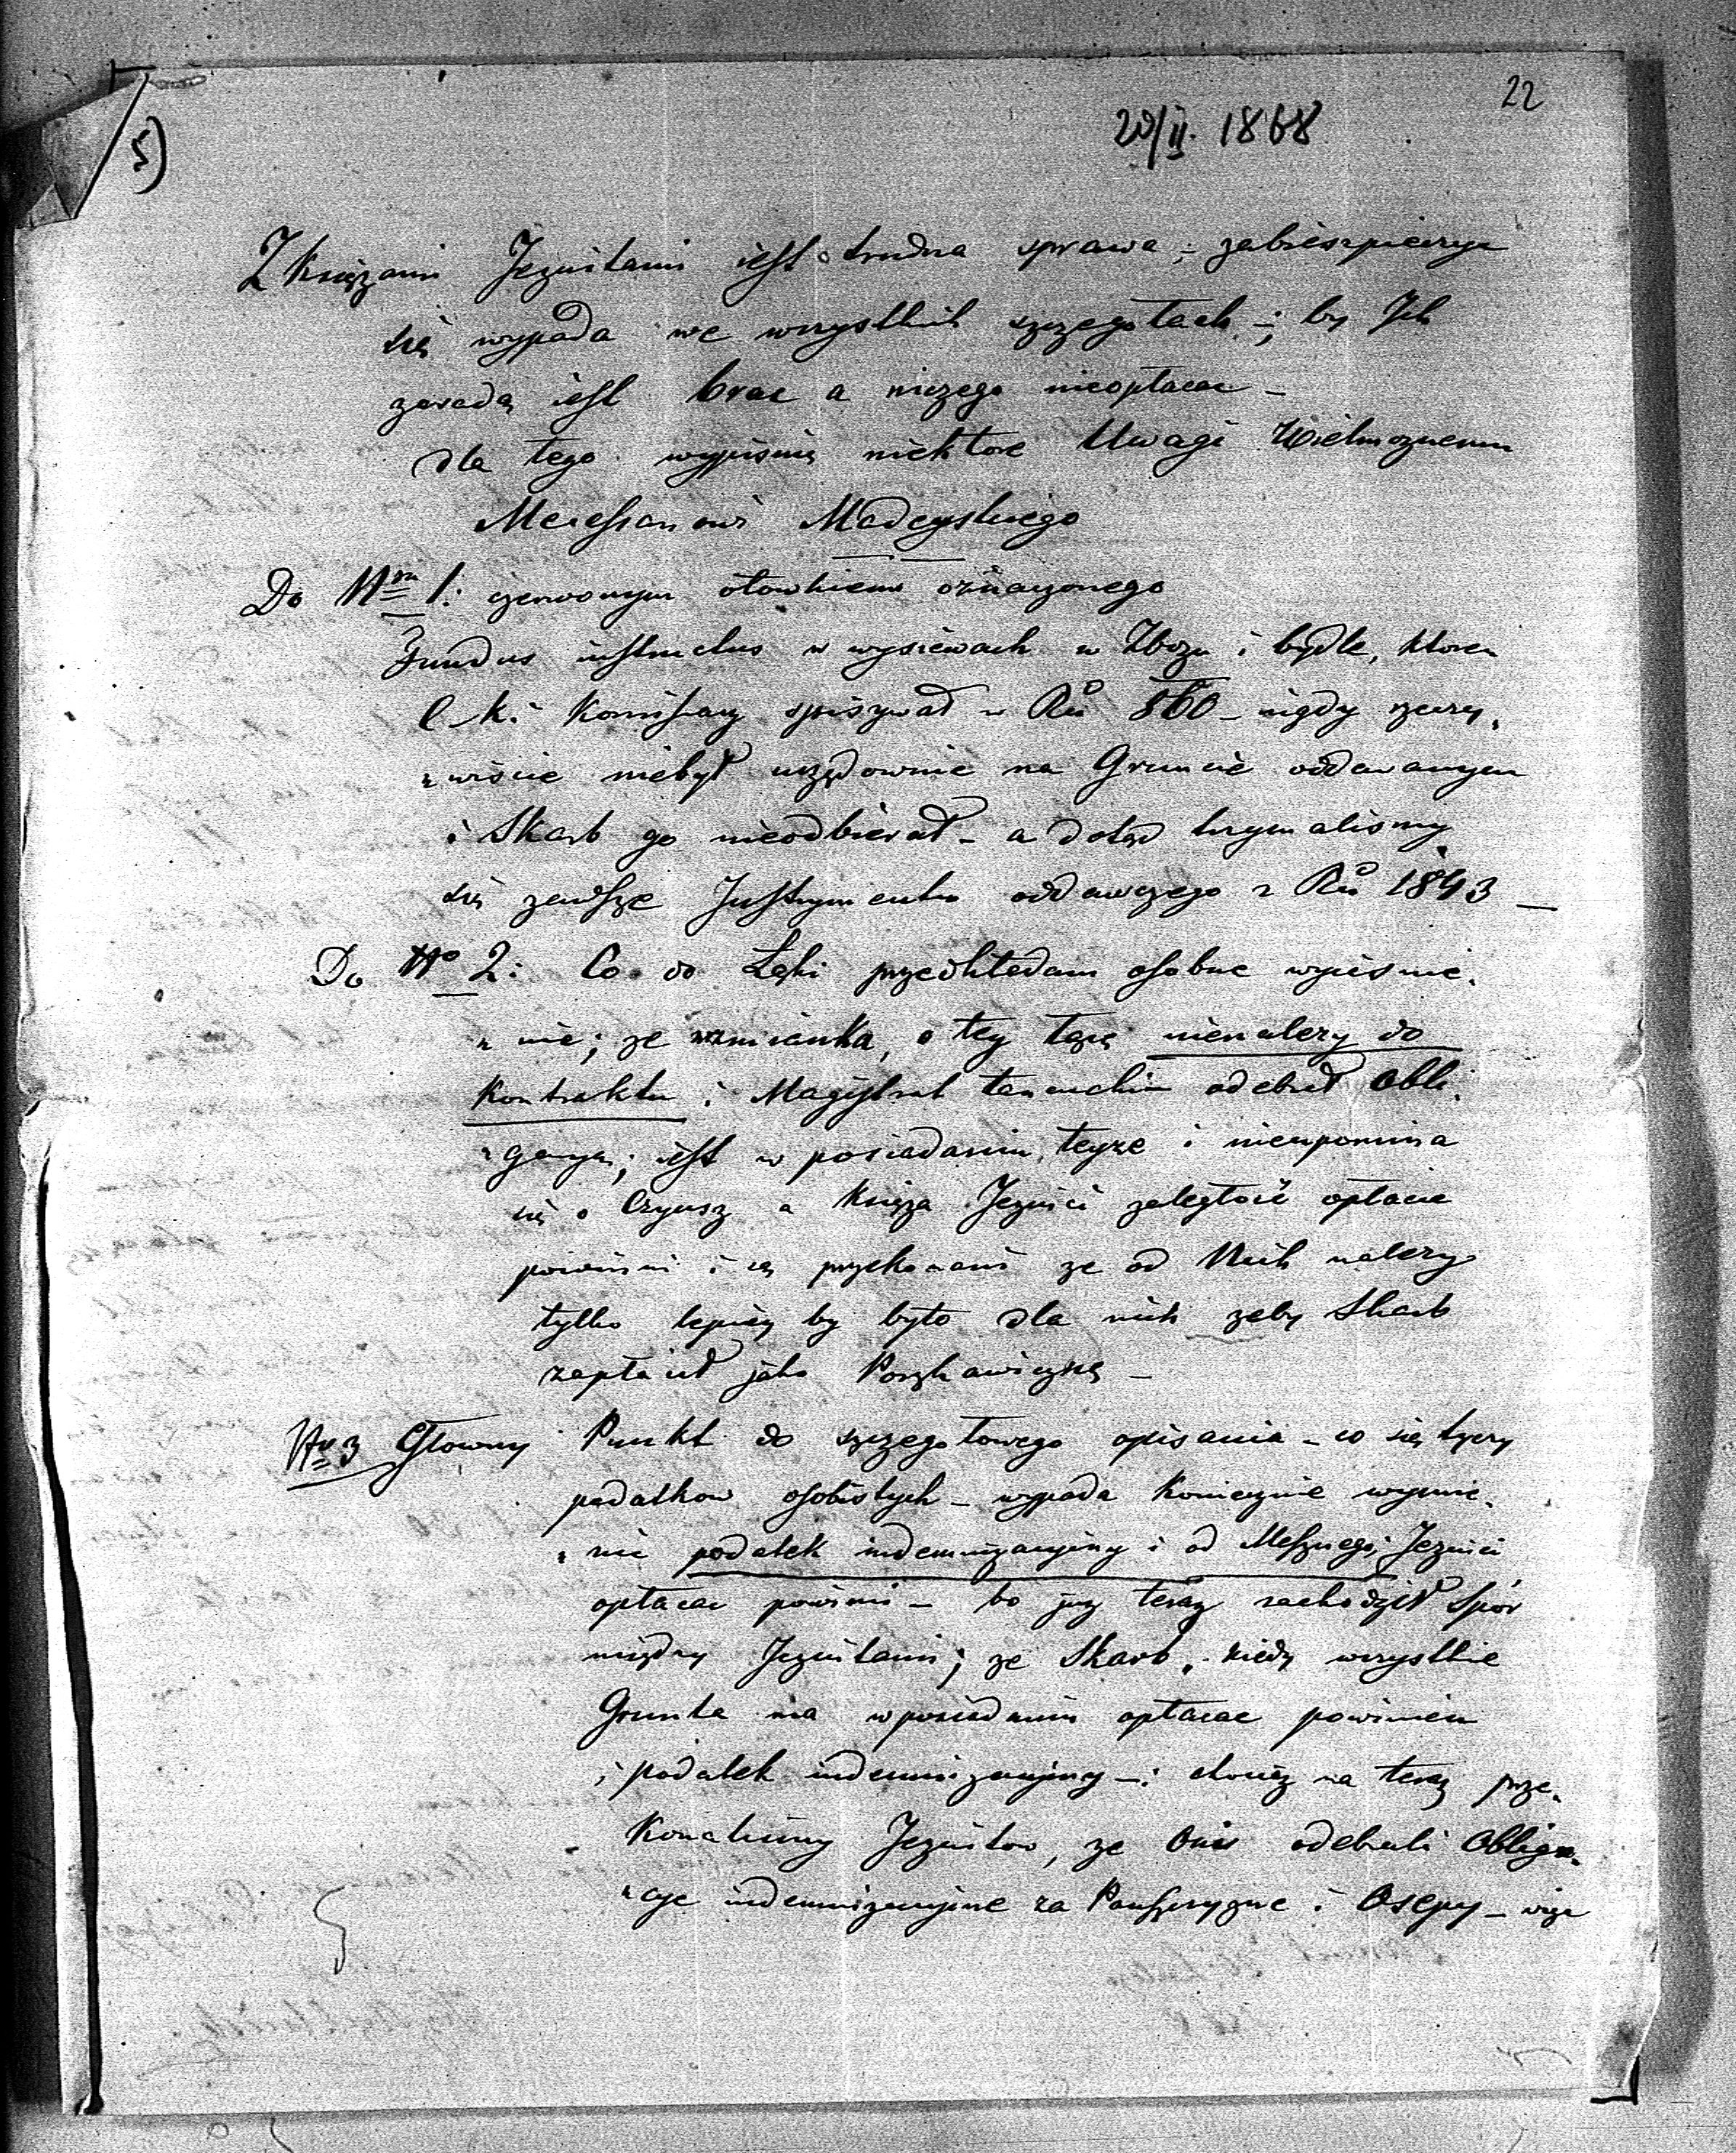 22
5)
20/II. 1868
Z Księzami Jezuitami iest trudna sprawa; zabiespieczyc
się wypada we wszystkich szczegołach; by Ich
zasadą iest brac a niczego nieopłacac –
dla tego wypisuię niektore Uwagi Wielmoznemu
Mecessanowi Madeyskiego
Do Nru 1: czerwonym ołowkiem oznaczonego
Fundus instructus w wysiewach w Zbozu i bydle, ktoren
C. k. Komissarz spisywał w Rů 860 – nigdy rzeczy„
„wiscie niebył urzędownie na Gruncie oddawanym
i Skarb go nieodbierał – a dotąd trzymalismy
się zawsze Instrymentu oddawczego z Rů 1843 –
Do No 2: Co do Łąki przedkładam osobne wyiesnie„
„nie; ze wzmianka, o tey łące nienalezy do
Kontraktu i Magistrat tarnecki odebrał Obli„
„gacyę; iest w posiadaniu teyze i nieupomina
się o Czynsz a Księza Jezuici zaległość opłacic
powinni i są przekonani ze od Nich nalezy
tylko lepiey by było dla nich zeby Skarb
zapłacił jako
No 3 Głowny Punkt do szczegołowego opisania – co się tyczy
podatkow osobistych – wypada Koniecznie wymie„
„nic podatek indemnizacyiny i od Mesznego, Jezuici
opłacac powinni – bo juz teraz zachodził Spór
między Jezuitami; ze Skarb, kiedy wszystkie
Grunta ma w posiadaniu opłacac powinien
i podatek indemnizacyiny –: chociez na teraz prze„
Konalismy Jezuitow, ze Oni odebrali Obliga„
„cye indemnizacyine za Panszczyzne i Osepy – więc